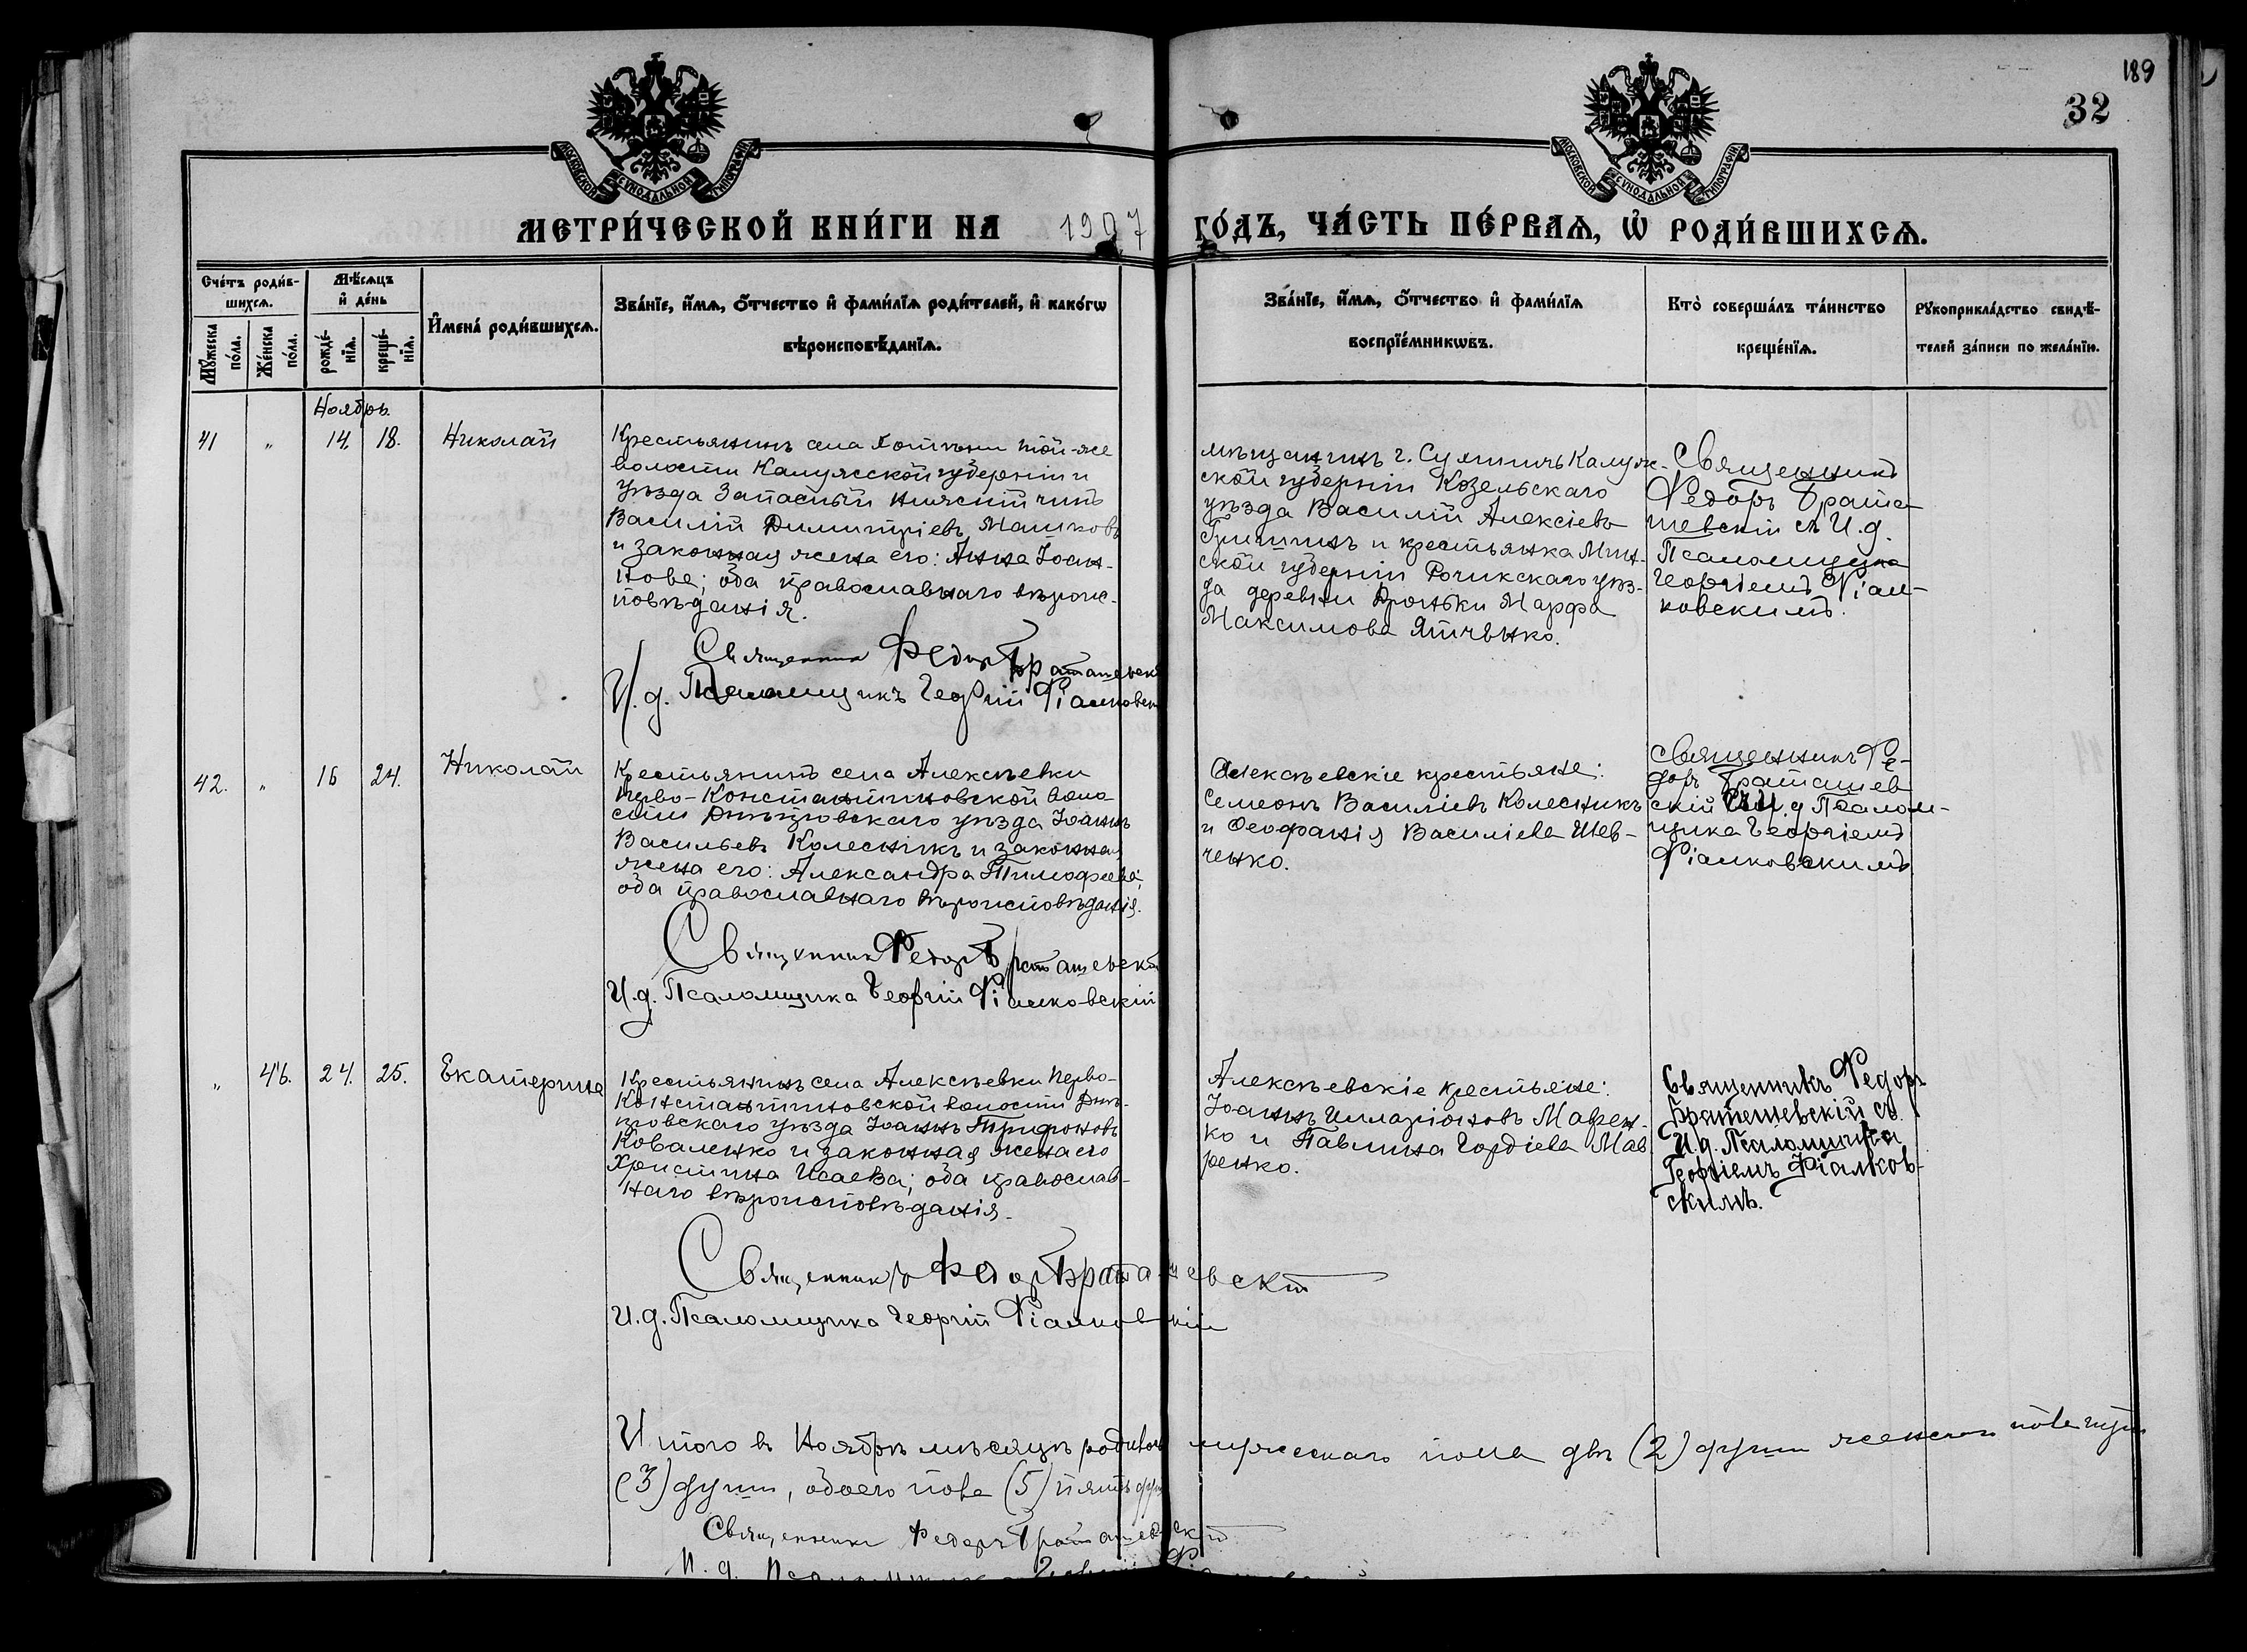 189
32
МОСКОВСКОЙ СѴНОДАЛЬНОЙ ТИПОГРАФІИ
МОСКОВСКОЙ СѴНОДАЛЬНОЙ ТИПОГРАФІИ
МЕТРИ́ЧЕСКОЙ КНИ́ГИ НА 1907 ГО́ДЪ, ЧА́СТЬ ПЕ́РВАѦ, Ѡ҆ РОДИ́ВШИХСѦ.
Сче́тъ роди́в-
шихсѧ.
Мѣ́сѧцъ
и҆ де́нь
Мꙋ́жеска
по́ла.
Же́нска
по́ла.
рожде́-
нїѧ.
креще́-
нїѧ.
И҆мена̀ роди́вшихсѧ.
Зва́нїе, и҆́мѧ, ѻ҆́тчество и҆ фами́лїѧ роди́телей, и҆ како́гѡ
вѣроисповѣ́данїѧ.
Зва́нїе, и҆́мѧ, ѻ҆́тчество и҆ фами́лїѧ
воспрїе́мникѡвъ.
Кто̀ соверша́лъ та́инство
креще́нїѧ.
Рꙋкоприкла́дство свидѣ́-
телей за́писи по жела́нїю.
Ноябрь.
41 " 14. 18. Николай
Крестьянинъ села Хотѣни той-же
волости Калужсской губерніи и
уѣзда Запасный нижсній чинъ
Василій Димитріевъ Машковъ
и законная жена его: Анна Іоан-
нова; оба православнаго вѣроис-
повѣданія.
Священник Федор Браташевскій
И. д. Псаломщикъ Георгій Фіалковскій
мѣщанинъ г. Сухиничъ Калуж-
ской губерніи Козельскаго
уѣзда Василій Алексіевъ
Гришинъ и крестьянка Мин-
ской губерніи Рѣчикскаго уѣз-
да деревни Дроньки Марфа
Максимова Ятченко.
Священникъ
Федоръ Брата-
шевскій съ И.д.
Псаломщика
Георгіемъ Фіал-
ковскимъ.
42. " 16 24. Николай
Крестьянинъ села Алексѣевки
Перво-Константиновской воло
сти Днѣпровскаго уѣзда Іоаннъ
Васильевъ Колесникъ и законная
жена его: Александра Тимофеева;
оба православнаго вѣроисповѣданія.
Священник Федор Браташевскій
И.д. Псаломщика Георгій Фіалковскій
Алексѣевскіе крестьяне:
Семеонъ Василіевъ Колесникъ
и Феофанія Василіева Шев-
ченко.
Священникъ Фе-
доръ Браташев
скій съ И.д Псалом-
щика Георгіемъ
Фіалковскимъ
" 46. 24. 25. Екатерина
Крестьянинъ села Алексѣевки Перво-
Константиновской волости Днѣ-
провскаго уѣзда Іоаннъ Трифоновъ
Коваленко и законная жена его
Христина Исаева; оба православ-
наго вѣроисповѣданія.
Священникъ Федор Браташевскій
И.д. Псаломщика Георгій Фіалковскій
Алексѣевскіе крестьяне:
Іоаннъ Илларіоновъ Мавренко
ко и Павлина Гордіева Мав
ренко.
Священникъ Федоръ
Браташевскій съ
И.д. Псаломщика
Георгіемъ Фіалков-
скимъ.
Итого въ Ноябрѣ мѣсяцѣ родилось мужескаго пола двѣ (2) души женскаго пола три
(3) души, обоего пола (5) пять душ
Священник Федоръ Браташевскій
И. д. Псаломщика Георгій